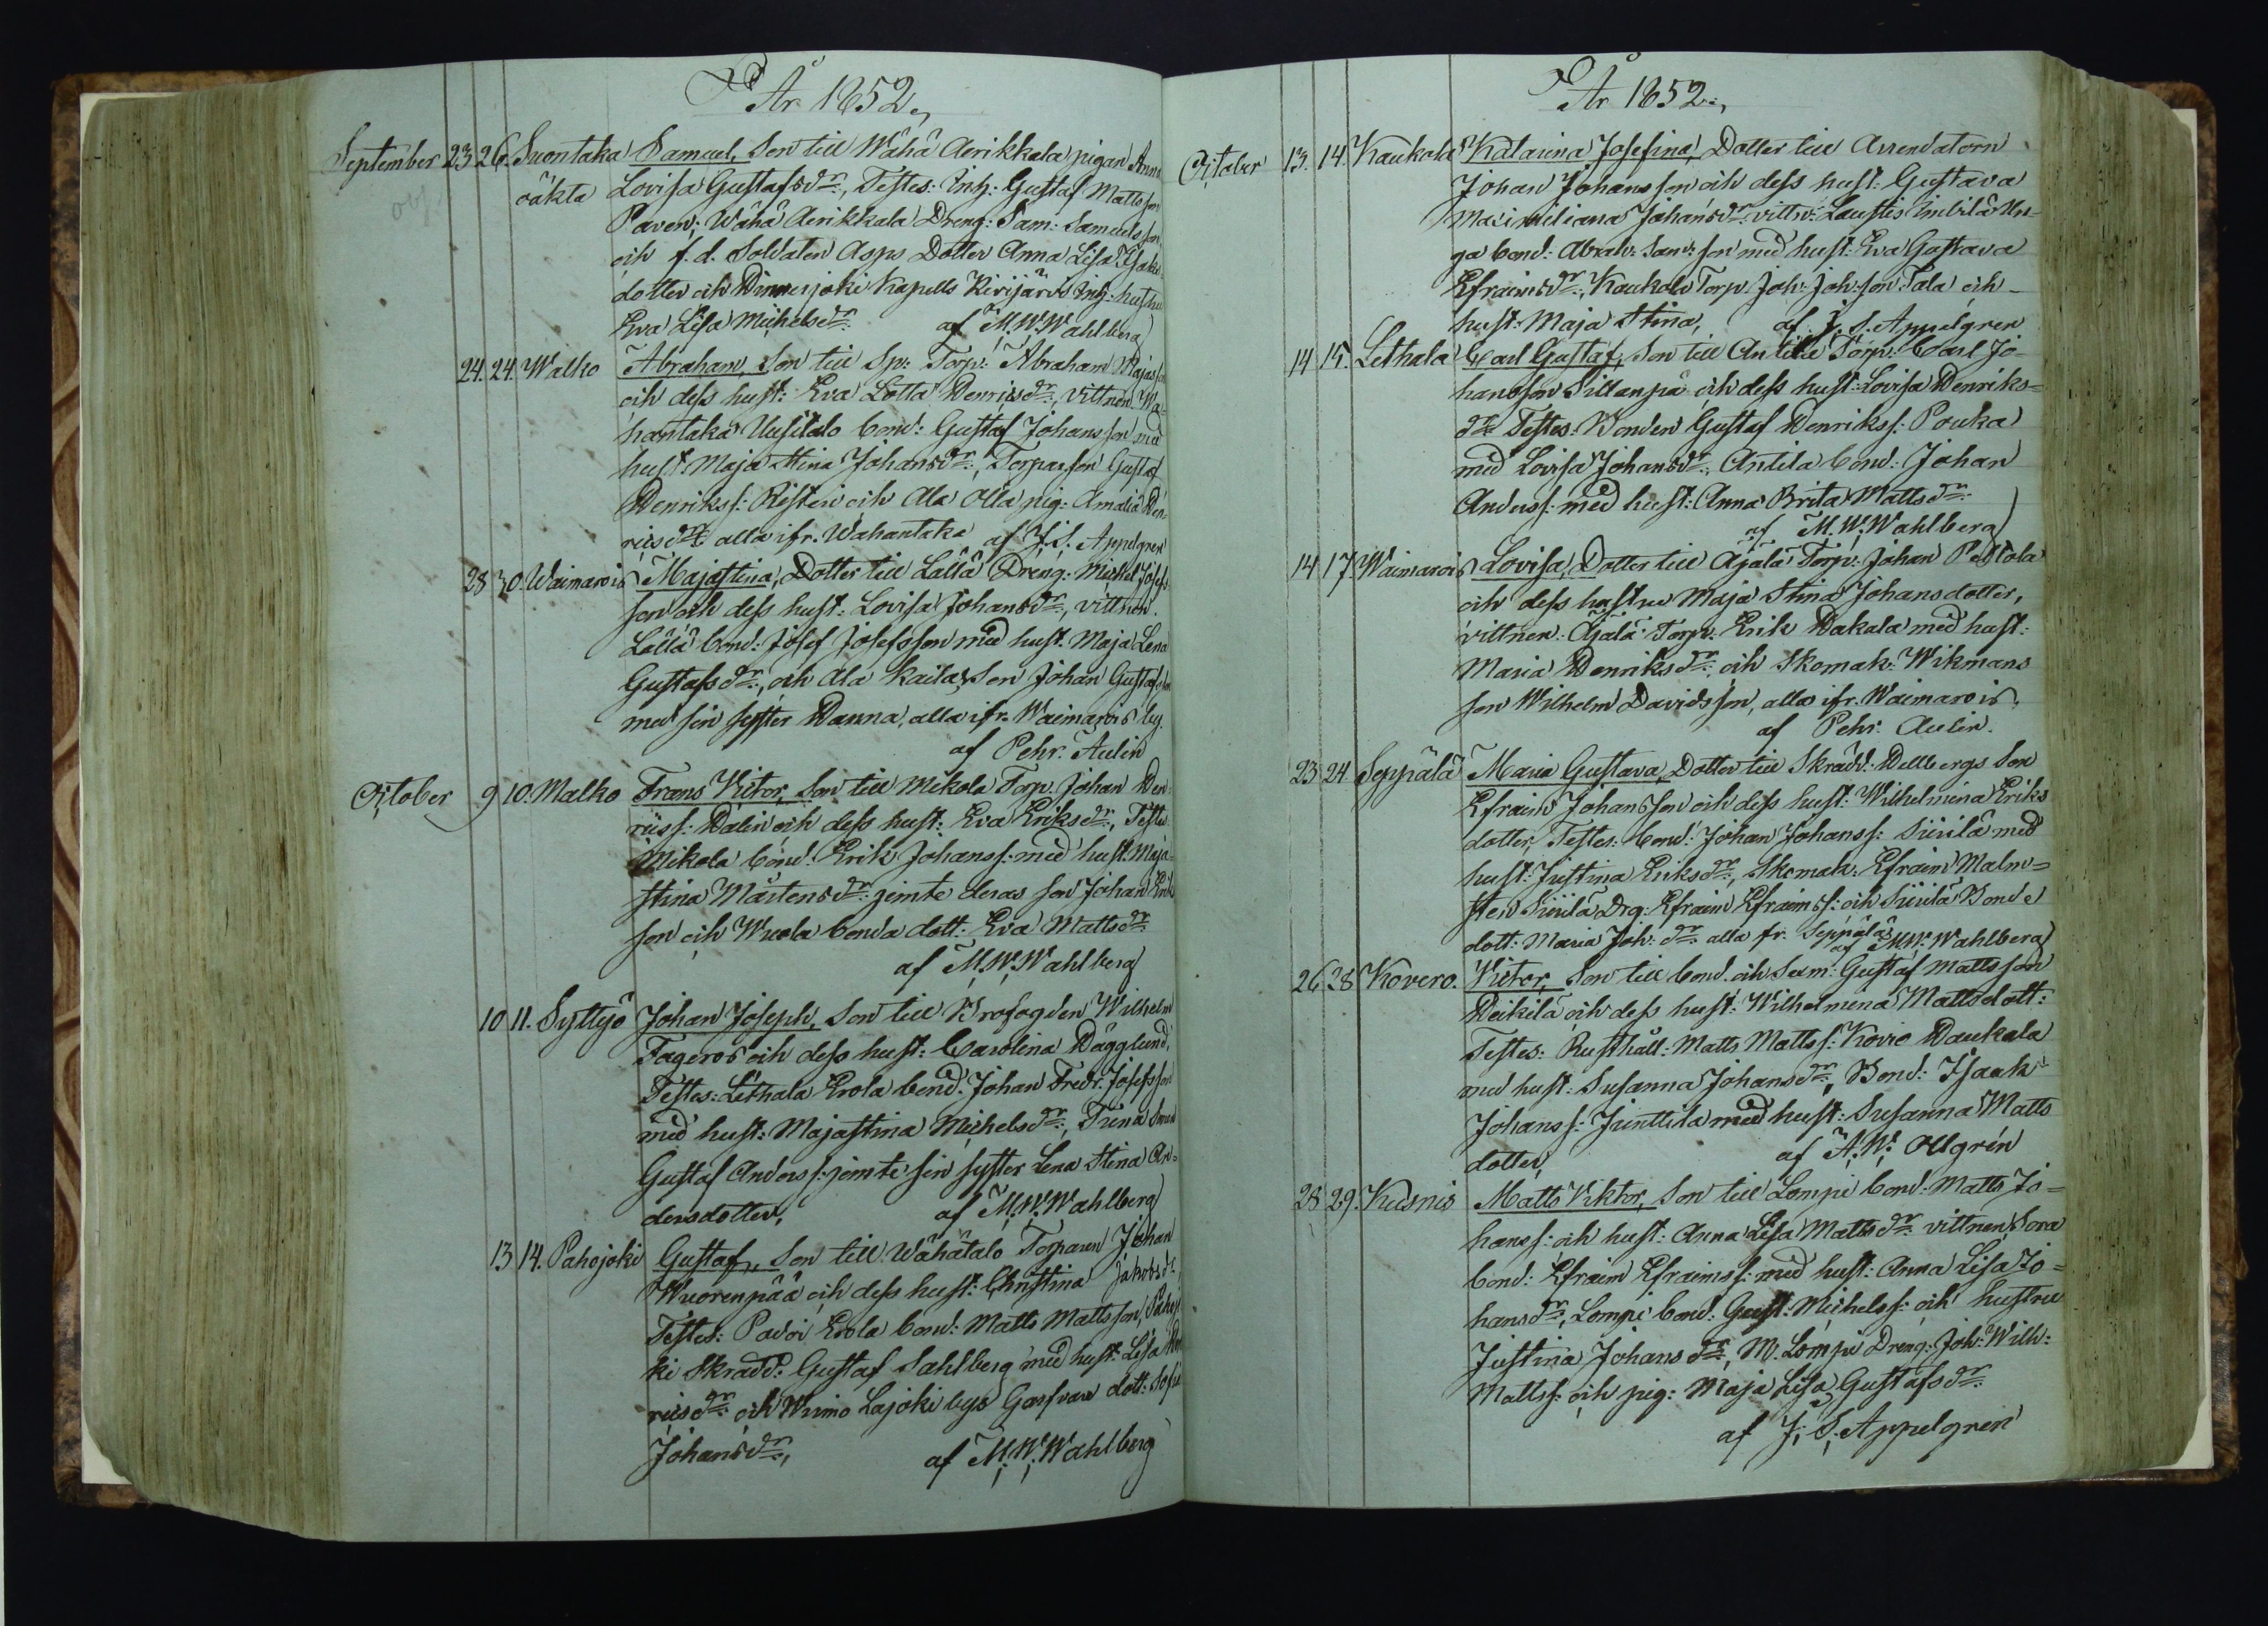 År 1852.,
September 23 26. Suontaka Samuel, Son till Wähä Aerikkala pigan Anna
obs. oäkta Lovisa Gustafsdr:, Testes: Inh: Gustaf Mattsson
Paven; Wähä Aerikkala Dreng: Sam: Samuelsson,
och f. d. Soldaten Asps Dotter Anna Lisa Isaks
dotter och Hinnerjoki Kapells Kirijärvi Inh: hustru
Eva Lisa Michelsdr: af M. W. Wahlberg
24. 24. Walko Abraham, Son till Sp: Torp: Abraham Majasson
och dess hust: Eva Lotta Henricsdr:, vittnen Wa-
hantaka Uusitalo bond: Gustaf Johansson med
hust: Maja Stina Johansdr:, Torparson Gustaf
Henrikss: Risteri och Ala Olla pig: Amalia Hen-
ricsdr: alla ifr. Wahantaka af J. S. Appelgren
28 30. Waimarois Majastina, Dotter till Lällä Dreng: Mickel Josef-
son och dess hust: Lovisa Johansdr:, vittnen.
Lällä bond: Josef Josefsson med hust. Maja Lena
Gustafsdr:, och Ala Kaila Son Johan Gustafsson
med sin syster Hanna, alla ifr. Waimarois by.
af Pehr. Aulin
October 9 10. Malko Frans Victor, Son till Mikola Torp. Johan Hen-
ricss: Dalin och dess hust: Eva Eriksdr:, Testes
Mikola bond. Erik Johanss: med hust. Maja
Stina Mårtensdr: jemte deras son Johan Eriks
son och Wuola bonda dott: Eva Mattsdr:
af M. W. Wahlberg
10 11. Syttyö Johan Joseph, Son till Brofogden Wilhelm
Fageros och dess hust: Carolina Hägglund,
Testes: Lethala Erola bond. Johan Fredr. Josefsson
med hust: Majastina Michelsdr:,
Gustaf Anderss: jemte sin syster Lena Stina An-
dersdotter, af M. W. Wahlberg
13 14. Pahojoki Gustaf, Son till Wähätalo Torparen Johan
Wuorenpää och dess hust: Christina Jakobsdr.
Testes: Pavoi Erola bond: Matts Mattsson, Pahojo
ki Skradd: Gustaf Sahlberg med hust: Lisa Hen
ricsdr: och Wiimo Lajoki bys Garfvare dott: Sofia
Johansdr:, af M. W. Wahlberg
År 1852.,
October 13. 14. Kaukola Katarina Josefina, Dotter till Arrendatorn
Johan Johansson och dess hust: Gustava
Maximiliana Johansdr: vittn: Laustis Imbilä Un-
ga bond: Abrah: Sam: son med hust: Eva Gustava
Efraimsdr: Kaukola Torp. Joh: Joh: son Tala och
hust: Maja Stina, af J. S. Appelgren
14 15. Lethala Carl Gustaf, Son till Antila Torp: Carl Jo-
hansson Sillanpä och dess hust: Lovisa Henriks-
dr: Testes: Bonden Gustaf Henrikss: Pouka
med Lovisa Johansdr:, Antila bond: Johan
Anderss: med hust: Anna Brita Mattsdr:
af M. W. Wahlberg
14 17 Waimarois Lovisa, Dotter till Äjälä Torp: Johan Peltola
och dess hustru Maja Stina Johansdotter,
vittnen: Äjälä Torp. Erik Hakala med hust:
Maria Henriksdr: och Skomak: Wikmans
son Wilhelm Davidsson, alla ifr. Waimarois,
af Pehr. Aulin.
23 24 Seppälä Maria Gustava, Dotter till Skrädd. Hellbergs Son
Efraim Johansson och dess hust: Wilhelmina Eriks
dotter, Testes: bond: Johan Johanss: Sieirilä med
hust: Justina Eriksdr:, Skomak. Efraim Malm-
sten Sieirilä Drg: Efraim Efraimss: och Sieirilä Bonde
dott: Maria Joh: dr: alla fr. Seppälä af M. W. Wahlberg
26 28 Kovero. Victor, Son till bond. och Sexm: Gustaf Mattsson
Heikilä och dess hust: Wilhelmina Mattsdott:
Testes: Rusthåll: Matts Mattss: Kovio Haukala
med hust: Susanna Johansdr:, Bond: Isaak
Johanss: Junttila med hust: Susanna Matts
dotter, af A. W. Ollgrén
28 29. Kusnis Matts Viktor, Son till Lompi bond. Matts Jo-
hanss: och hust: Anna Lisa Mattsdr: vittnen, Sora
bond: Efraim Efraimss: med hust: Anna Lisa Jo-
hansdr: Lompi bond: Gust: Michelss: och hustru
Justina Johansdr:, M. Lompi Dreng: Joh: Wilh:
Mattss: och pig: Maja Lisa Gustafsdr:
af J. S. Appelgren